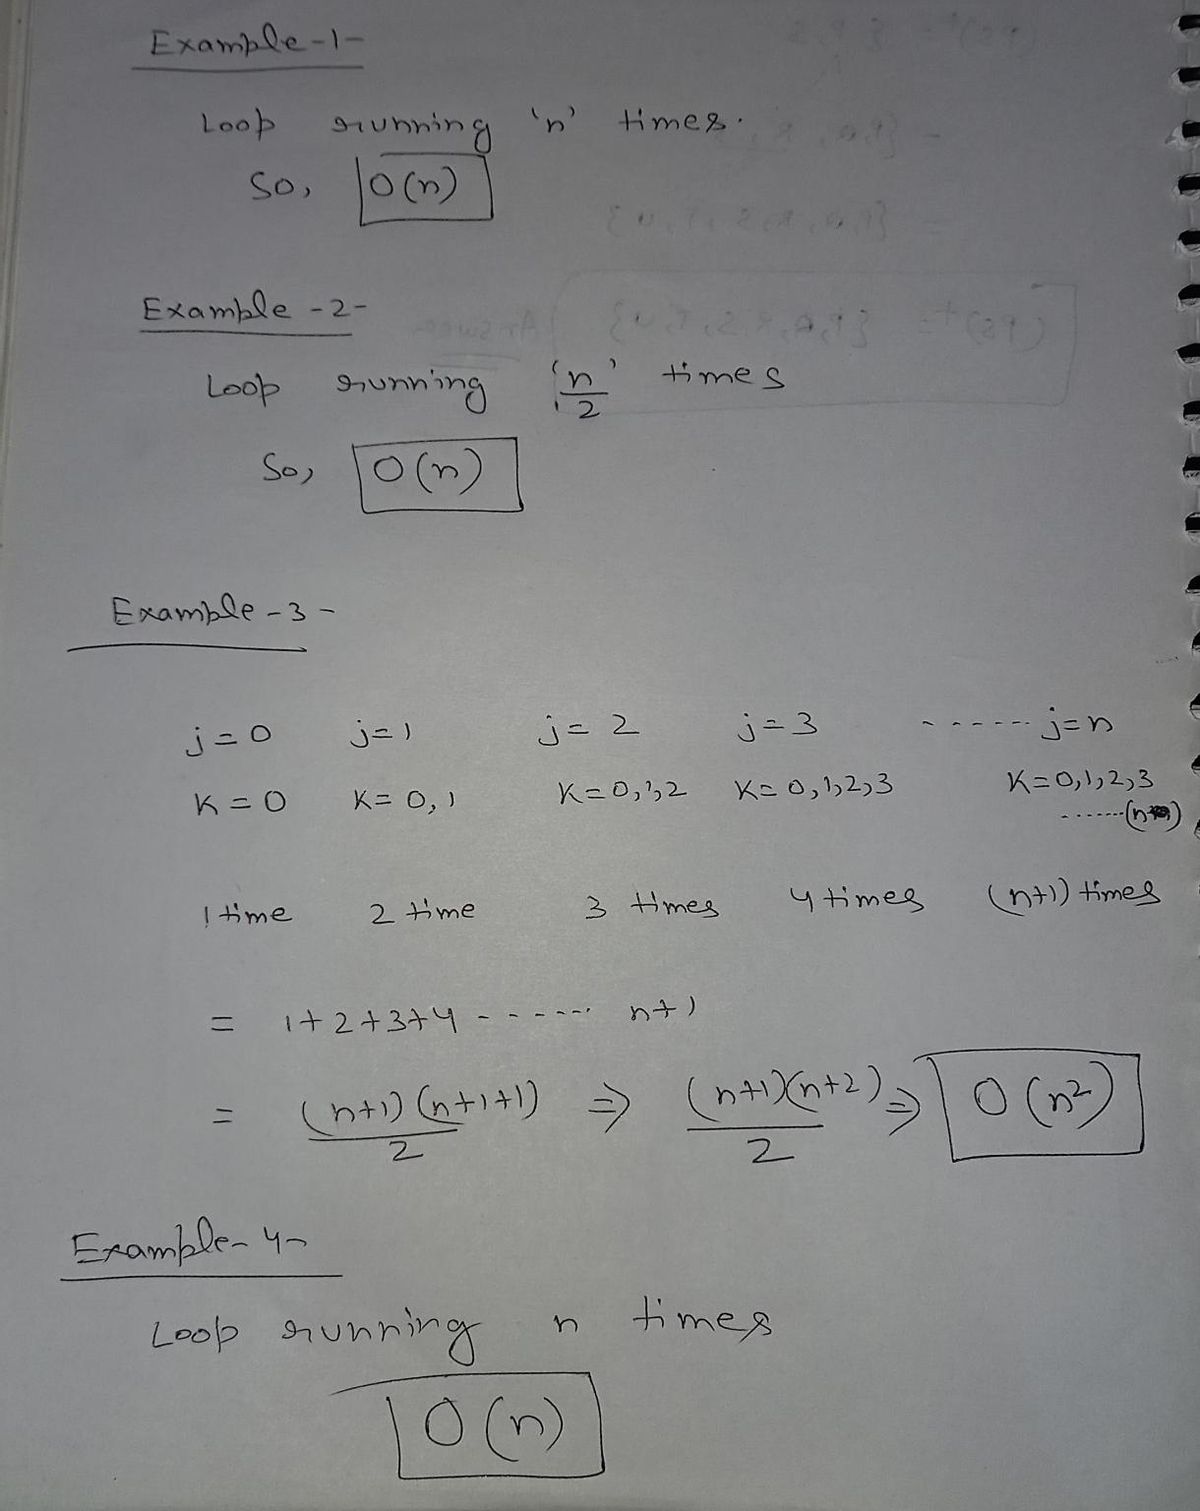 Example-1-
Loop running 'n' times.
So, O(n)
Example -2-
Loop running 'n/2' times
So, O(n)
Example-3-
j=0 j=1 j=2 j=3 ------ j=n
K=0 K=0,1 K=0,1,2 K=0,1,2,3 K=0,1,2,3
.......(n)
1 time 2 time 3 times 4 times (n+1) times
= 1+2+3+4 ------ n+1
= (n+1)(n+1+1)/2 => (n+1)(n+2)/2 => O(n²)
Example-4-
Loop running n times
O(n)